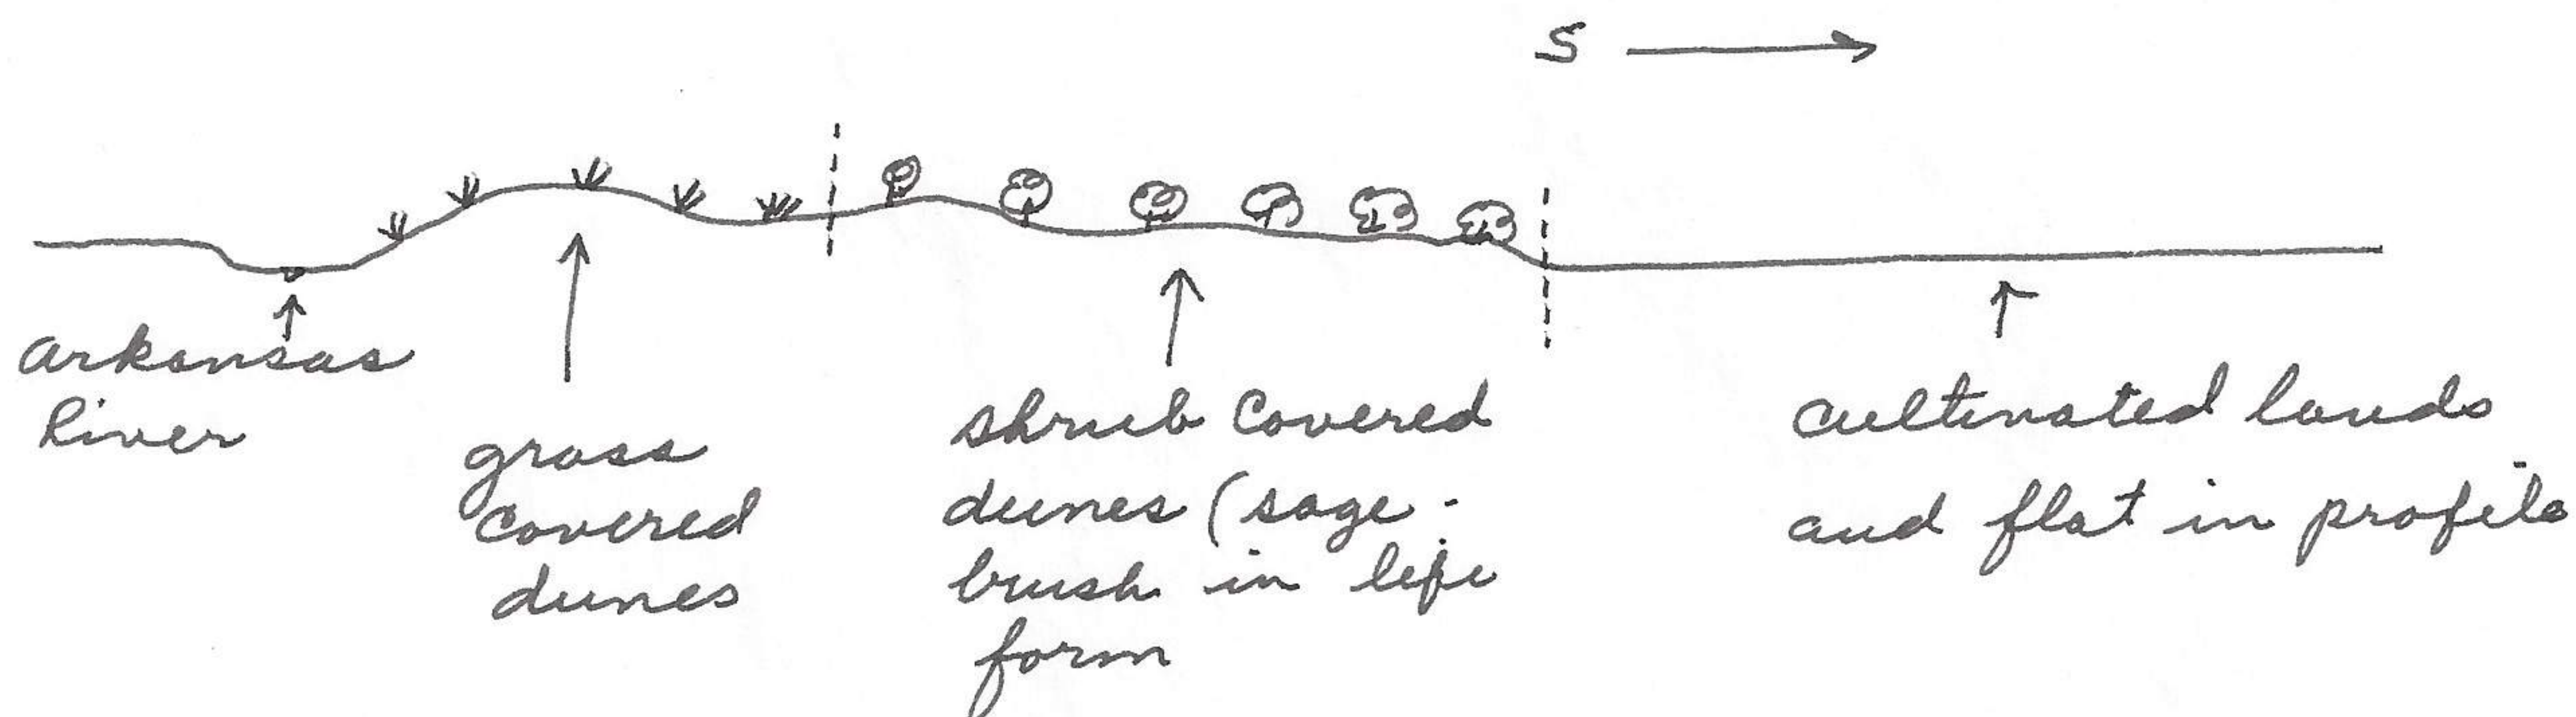 S
arkansas
River
grass
covered
dunes
shrub covered
dunes (sage-
brush in life
form
cultivated lands
and flat in profile